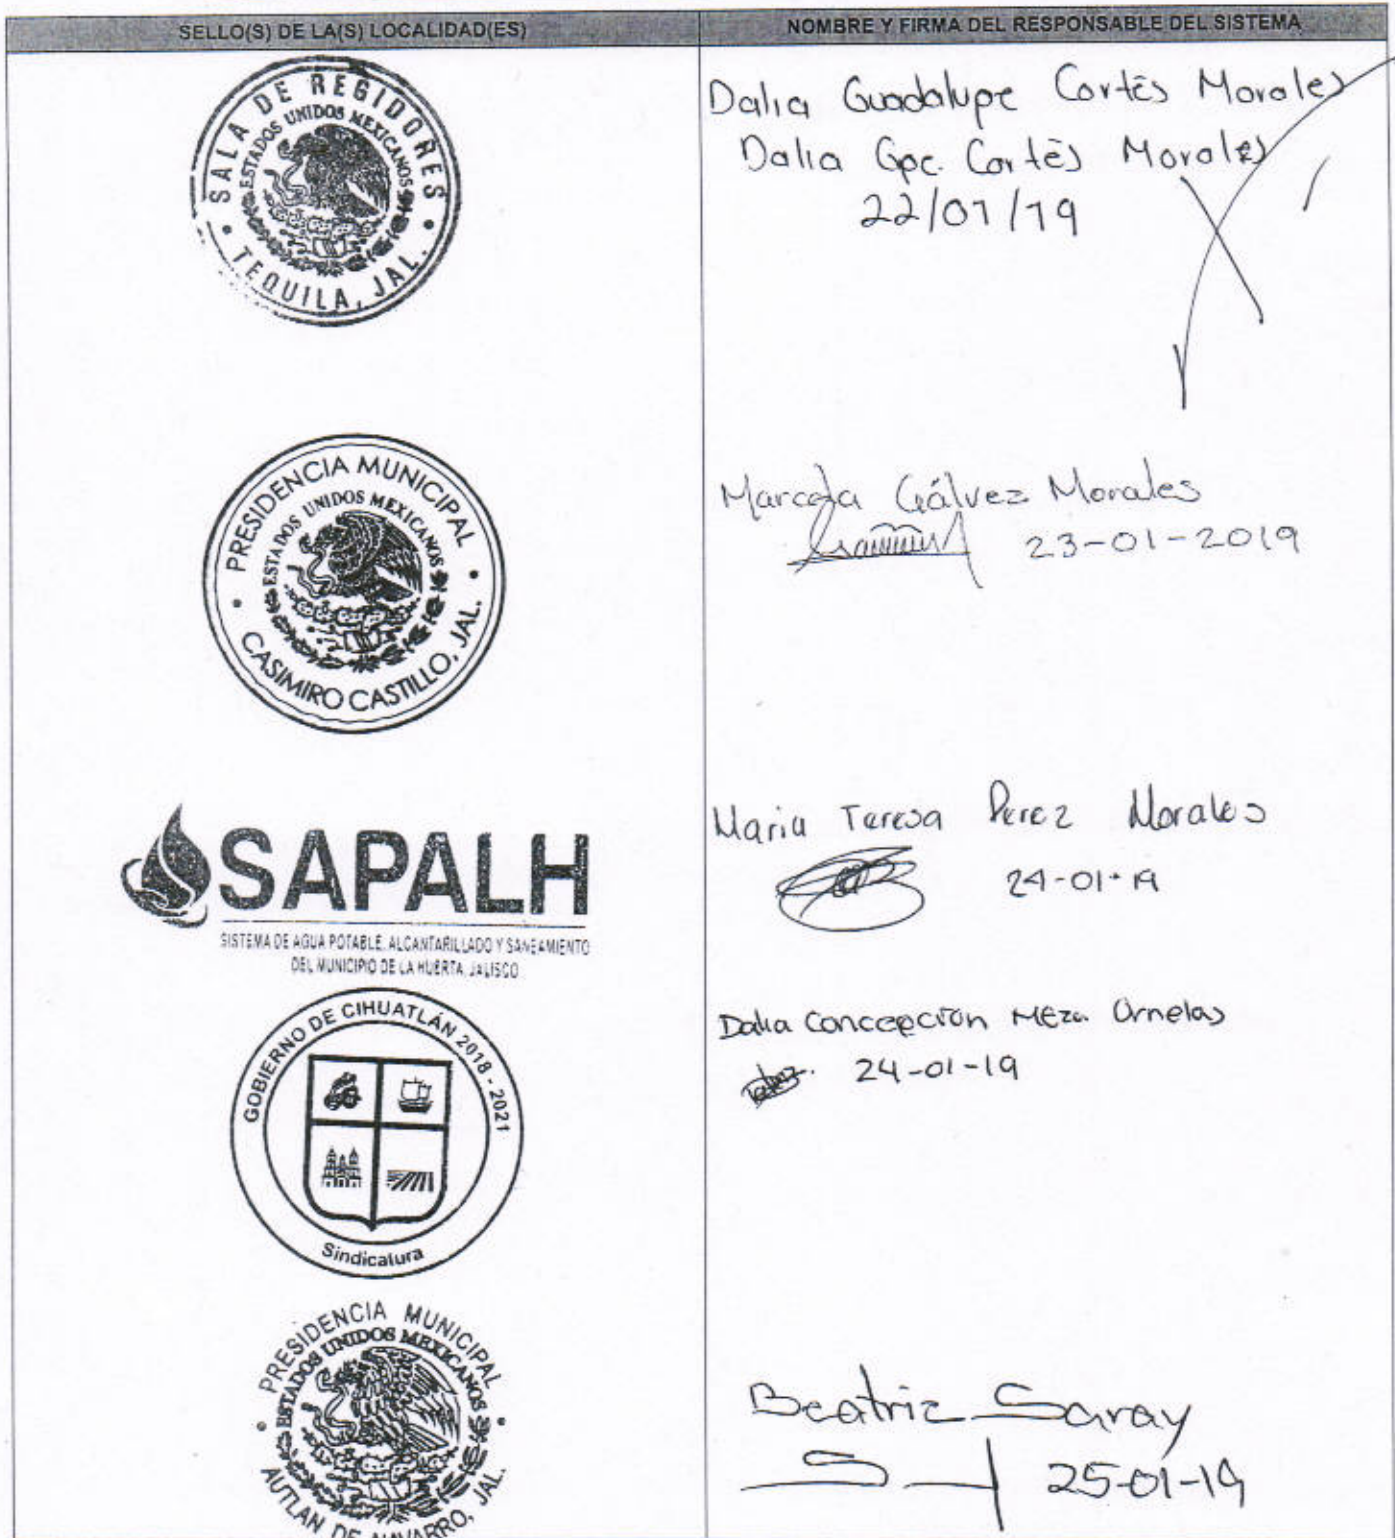 SELLO(S) DE LA(S) LOCALIDAD(ES)
NOMBRE Y FIRMA DEL RESPONSABLE DEL SISTEMA
SALA DE REGIDORES
ESTADOS UNIDOS MEXICANOS
TEQUILA, JAL.
Dalia Guadalupe Cortés Morales
Dalia Gpe. Cortés Morales
22/01/19
PRESIDENCIA MUNICIPAL
ESTADOS UNIDOS MEXICANOS
CASIMIRO CASTILLO, JAL.
Marcela Gálvez Morales
23-01-2019
SAPALH
SISTEMA DE AGUA POTABLE, ALCANTARILLADO Y SANEAMIENTO
DEL MUNICIPIO DE LA HUERTA, JALISCO
Maria Teresa Perez Morales
24-01-19
GOBIERNO DE CIHUATLÁN 2018 - 2021
Sindicatura
Dalia Concepcion Meza Ornelas
24-01-19
PRESIDENCIA MUNICIPAL
ESTADOS UNIDOS MEXICANOS
AUTLAN DE NAVARRO, JAL.
Beatriz Saray
25-01-19